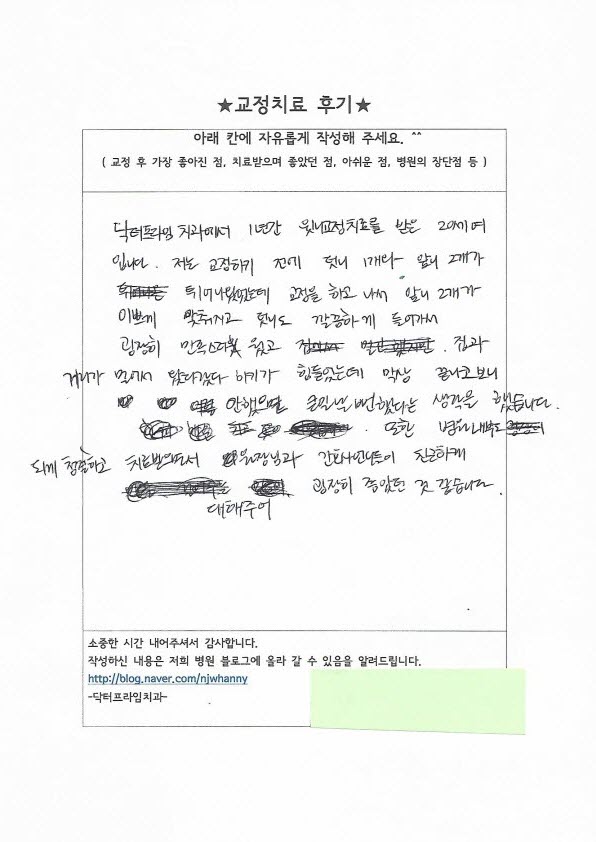 ★교정치료 후기★
아래 칸에 자유롭게 작성해 주세요. ^^
( 교정 후 가장 좋아진 점, 치료받으며 좋았던 점, 아쉬운 점, 병원의 장단점 등 )
닥터프라임 치과에서 1년간 윗니교정치료를 받은 20세 여
입니다. 저는 교정하기 전에 덧니 1개와 앞니 2개가
튀어나왔었는데 교정을 하고 나서 앞니 2개가
이쁘게 맞춰지고 덧니도 깔끔하게 들어가서
굉장히 만족스러웠고 집과
거리가 멀어서 왔다갔다 하기가 힘들었는데 막상 끝나고보니
안했으면 큰일날 뻔했다는 생각을 했습니다.
또한 병원내부도
되게 청결하고 치료받으면서 원장님과 간호사언니들이 친근하게
대해주어 굉장히 좋았던 것 같습니다.
소중한 시간 내어주셔서 감사합니다.
작성하신 내용은 저희 병원 블로그에 올라 갈 수 있음을 알려드립니다.
http://blog.naver.com/njwhanny
-닥터프라임치과-